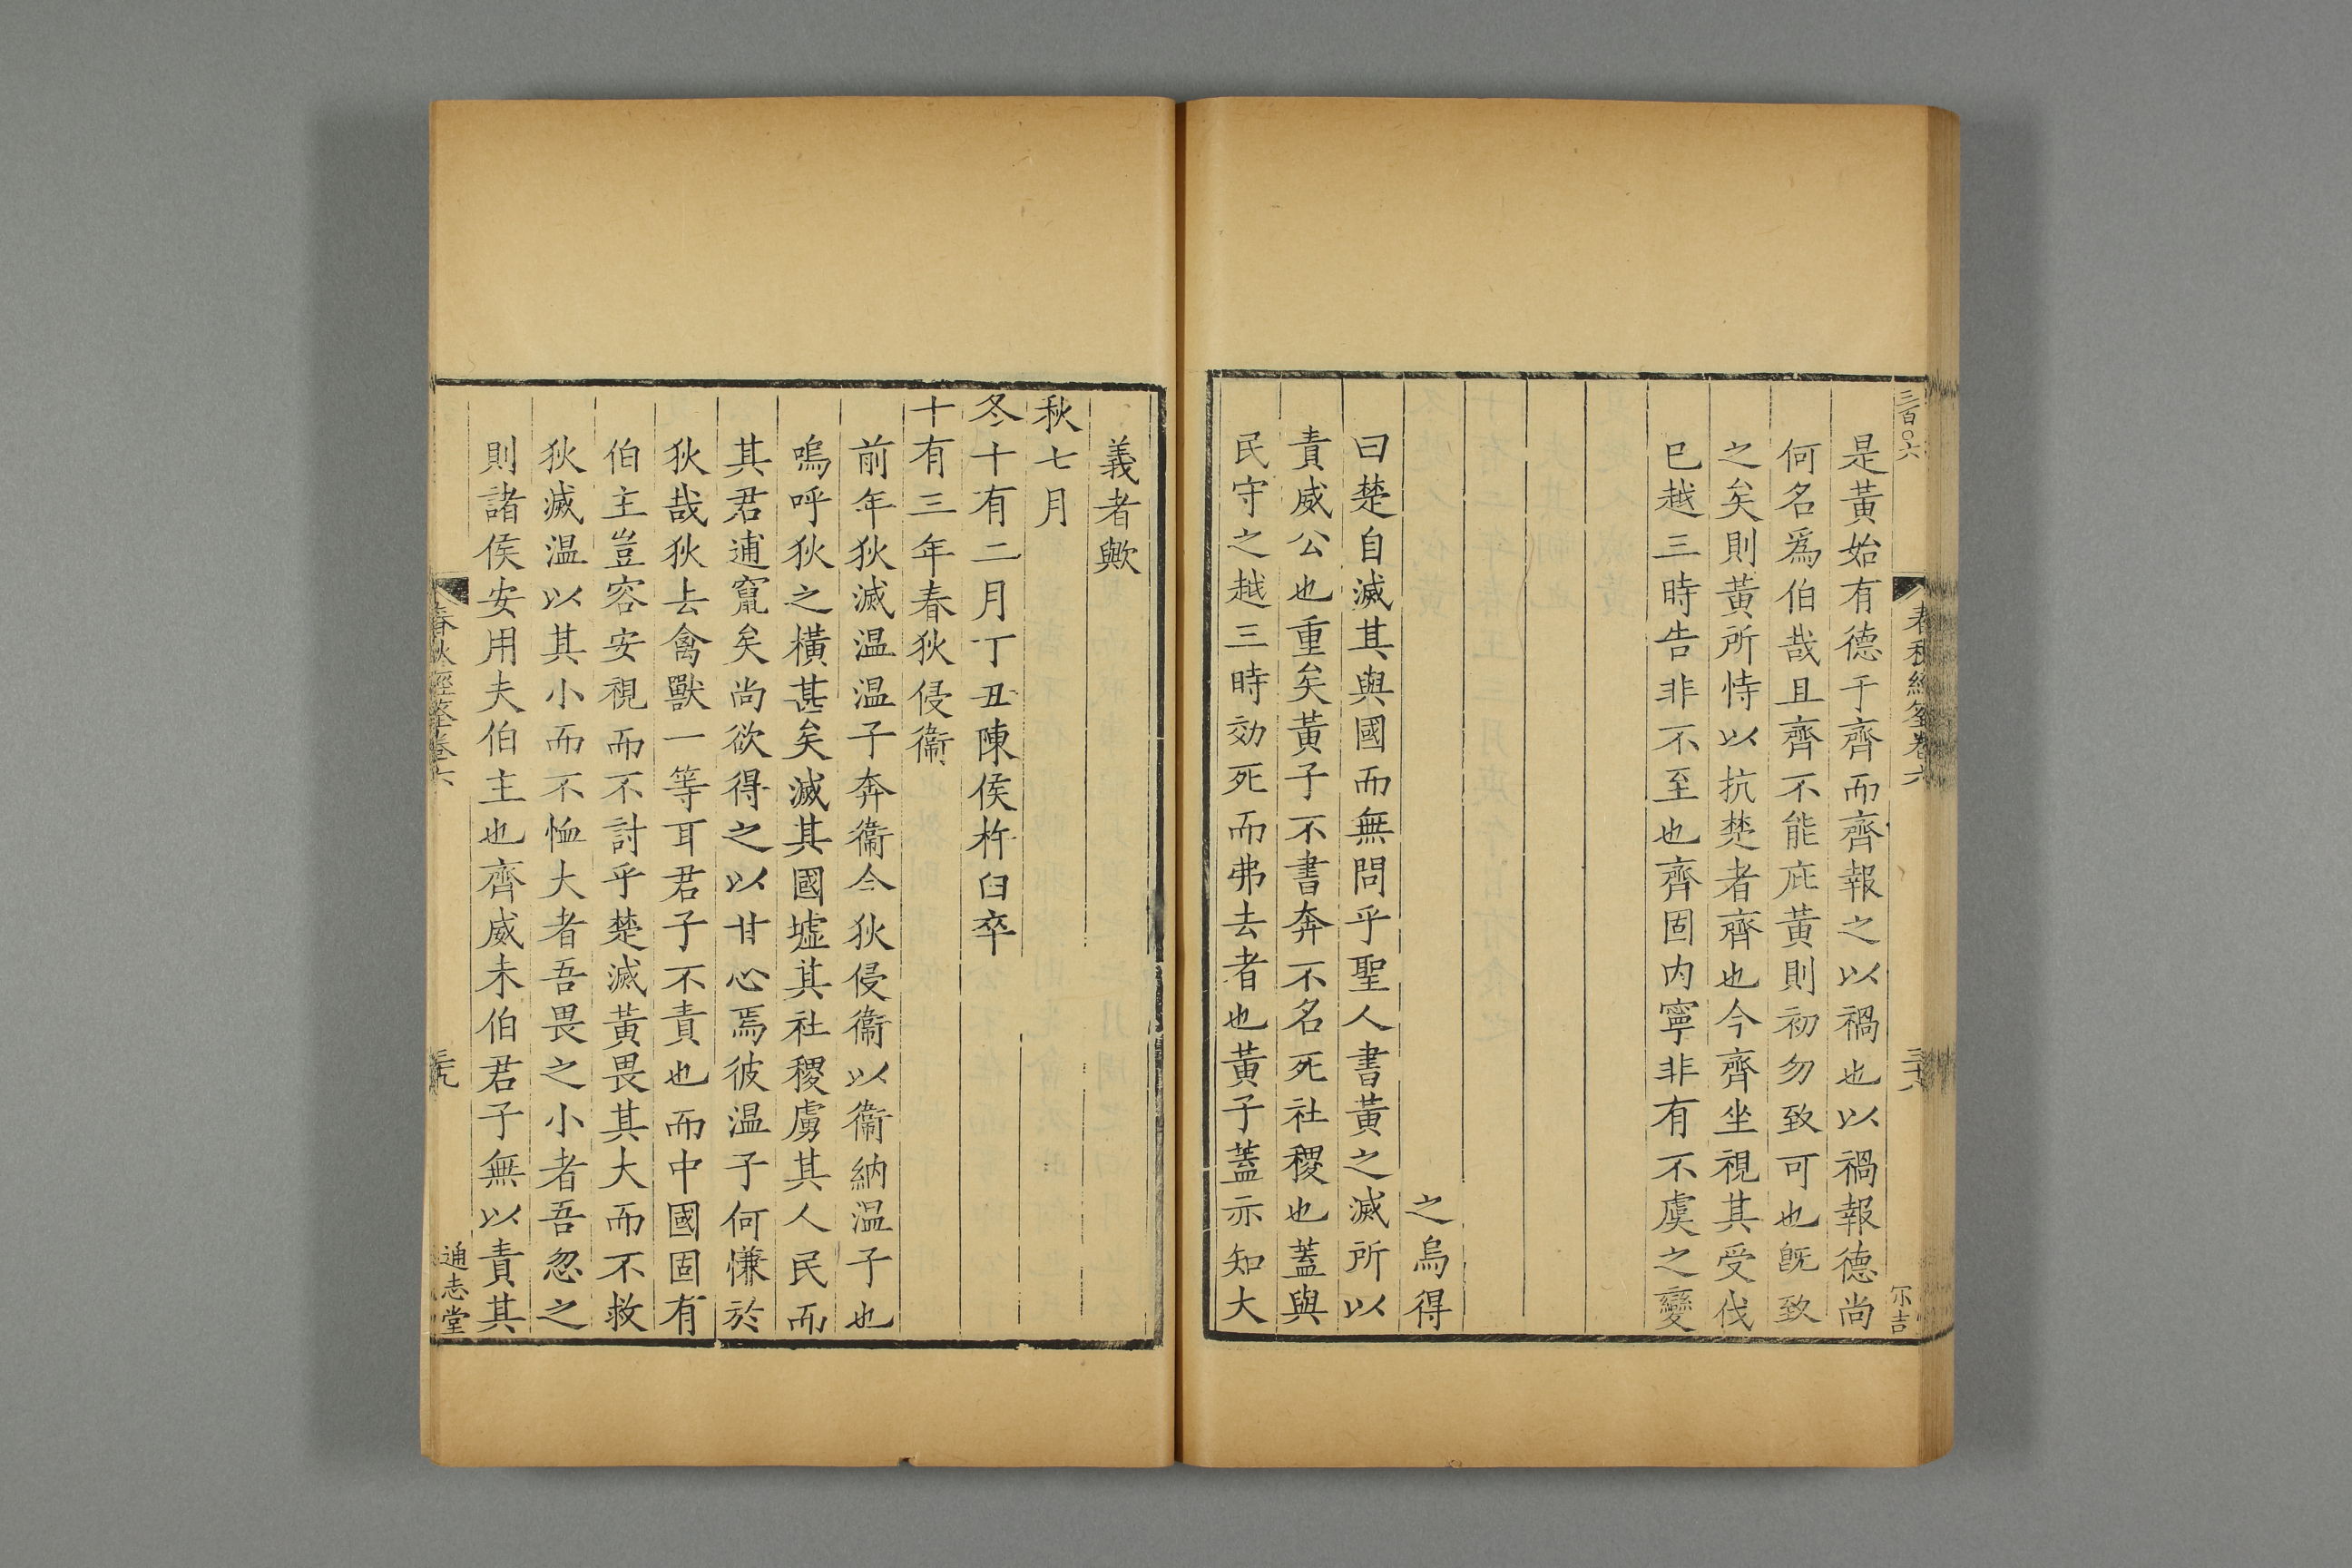 三百〇六
春秋經筌卷六
三十八
尔吉
是黃始有德于齊而齊報之以禍也以禍報德尚
何名爲伯哉且齊不能庇黃則初勿致可也旣致
之矣則黃所恃以抗楚者齊也今齊坐視其受伐
已越三時告非不至也齊固内寧非有不虞之變
之烏得
曰楚自滅其與國而無問乎聖人書黃之滅所以
責威公也重矣黃子不書奔不名死社稷也蓋與
民守之越三時効死而弗去者也黃子蓋示知大
義者歟
秋七月
冬十有二月丁丑陳侯杵臼卒
十有三年春狄侵衞
前年狄滅温温子奔衞今狄侵衞以衞納温子也
嗚呼狄之橫甚矣滅其國墟其社稷虜其人民而
其君逋竄矣尚欲得之以甘心焉彼温子何慊於
狄哉狄去禽獸一等耳君子不責也而中國固有
伯主豈容安視而不討乎楚滅黃畏其大而不救
狄滅温以其小而不恤大者吾畏之小者吾忽之
則諸侯安用夫伯主也齊威未伯君子無以責其
春秋經筌卷六
三十九
通志堂